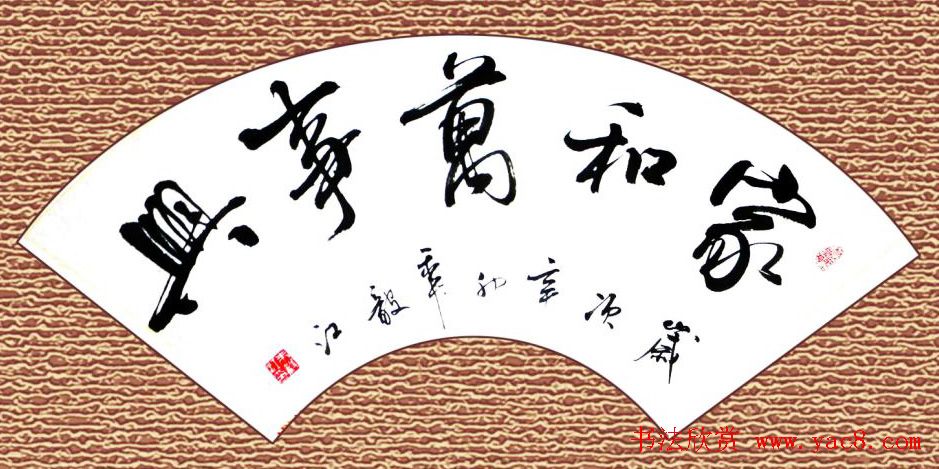 家和萬事興
歲次辛卯毅江
书法欣赏 www.yac8.com